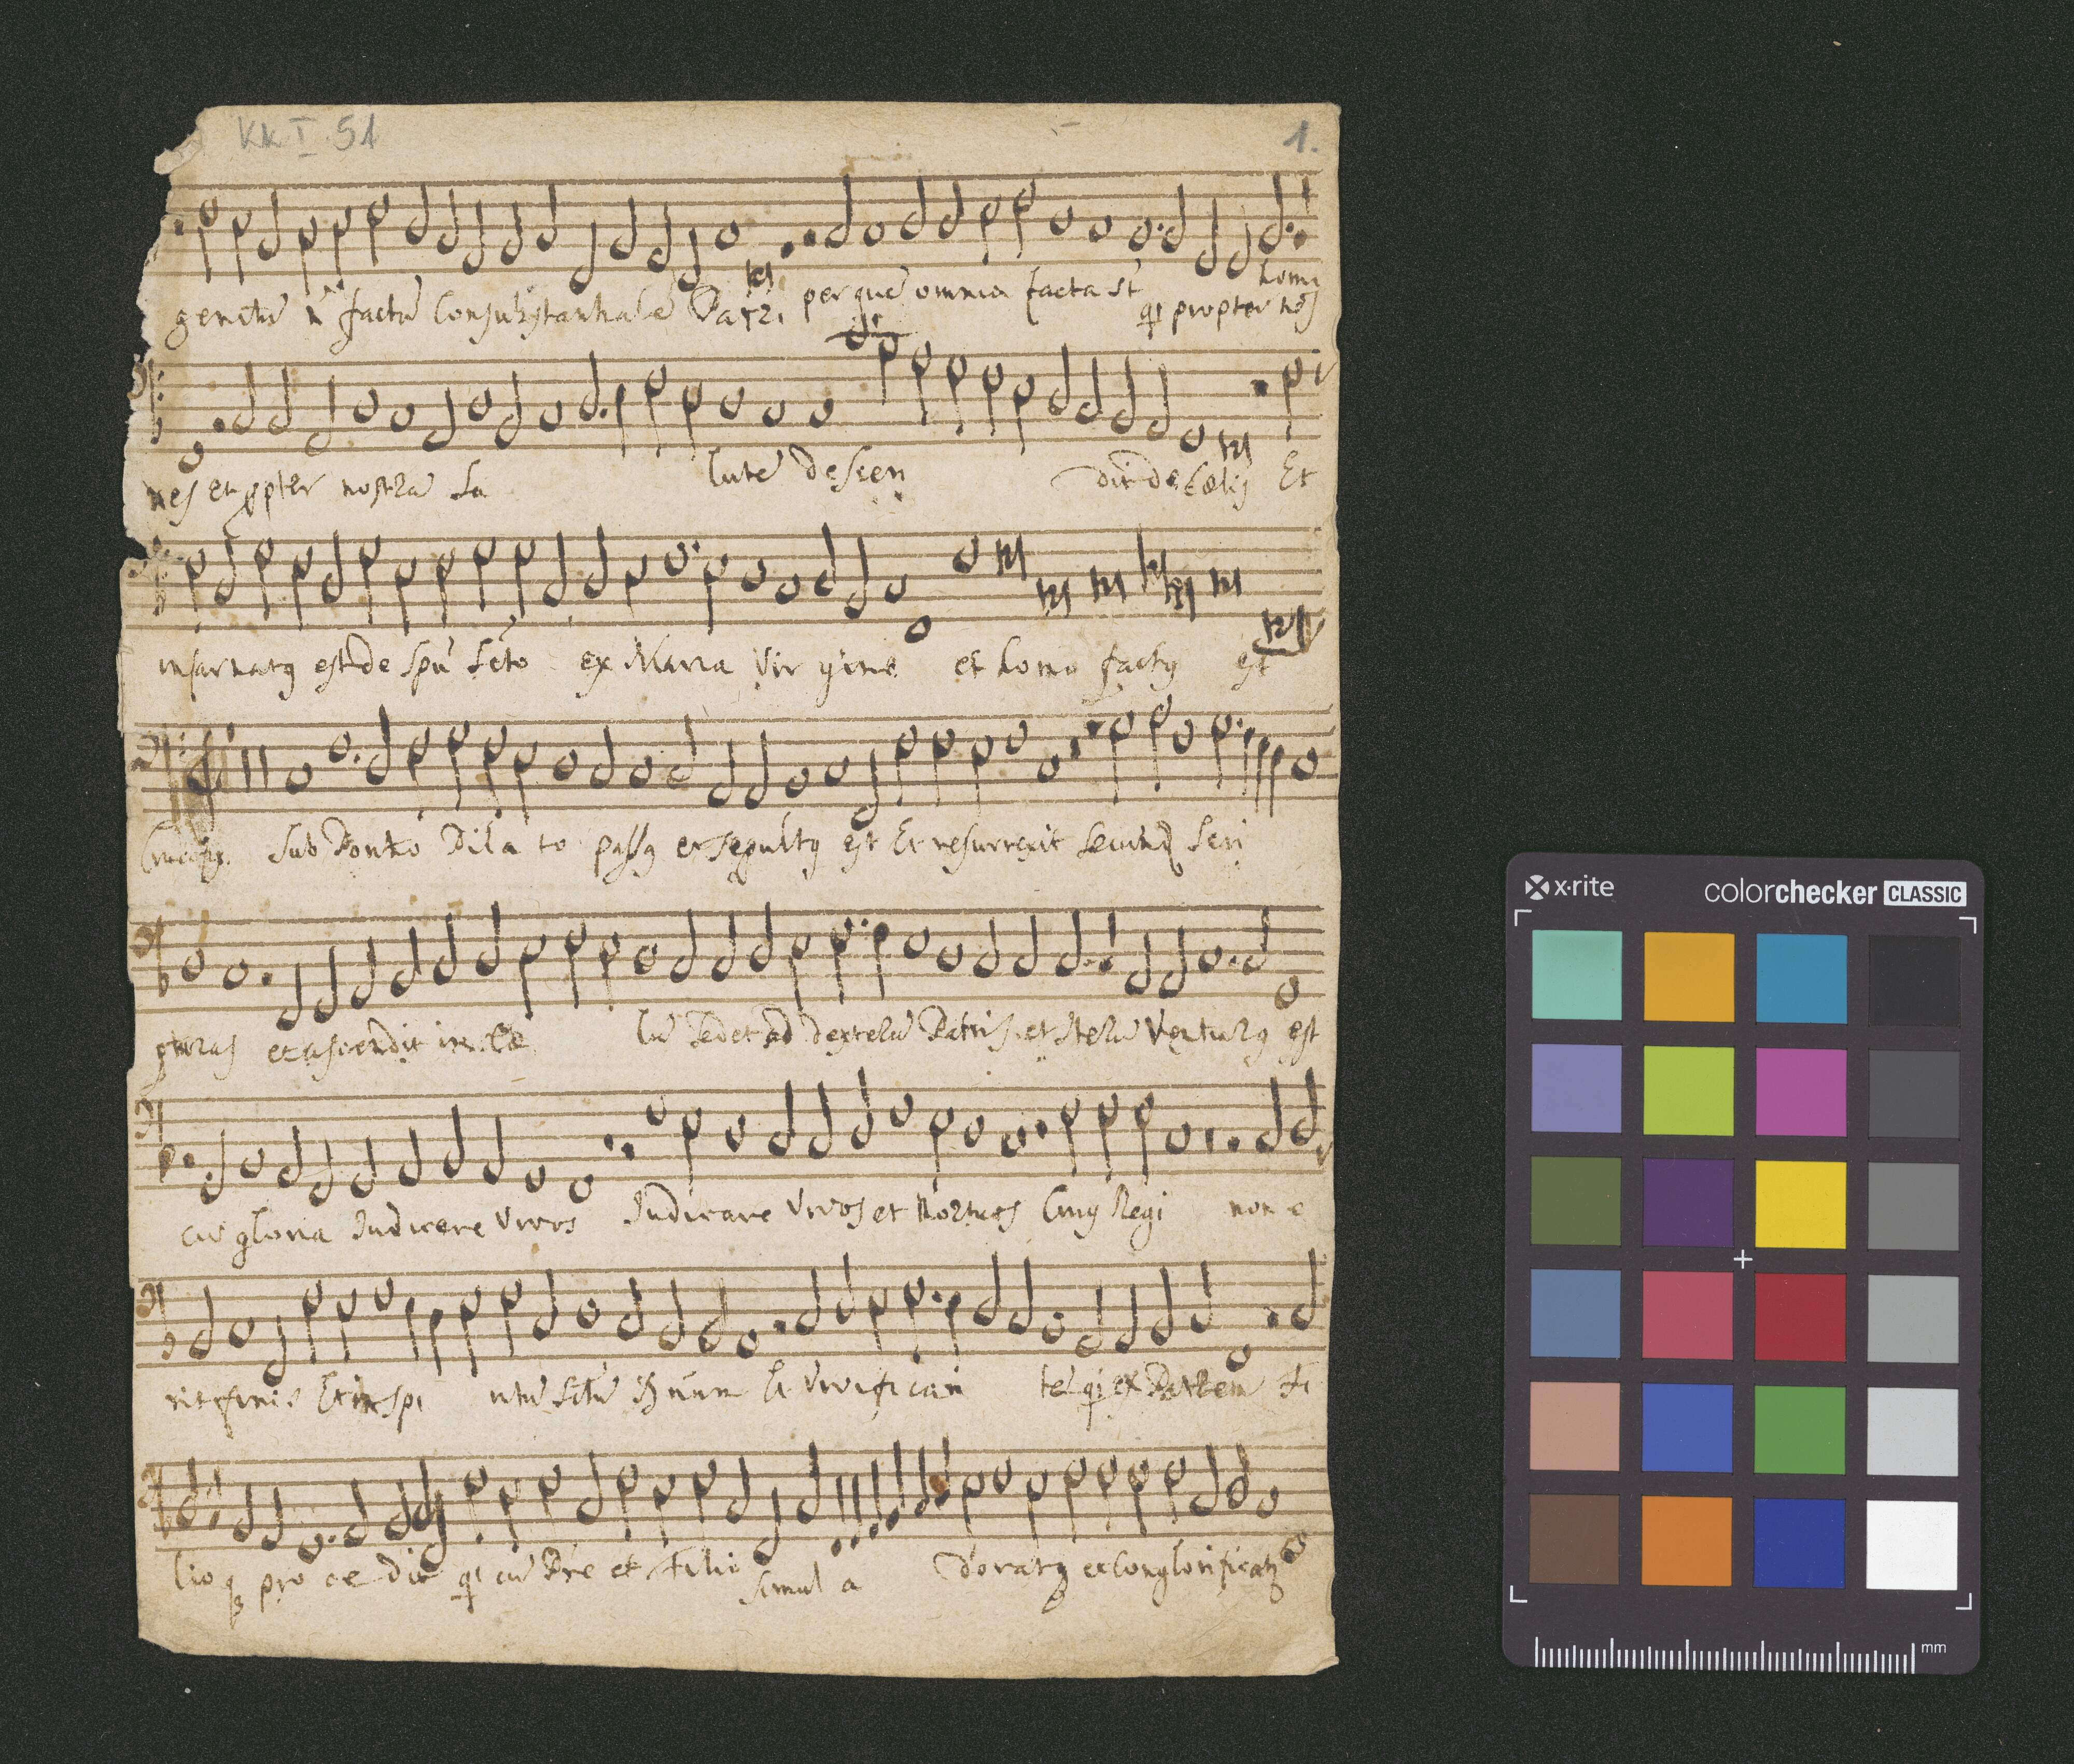 Kk I 51
1.
genitū n̄ factū Consubstantialē Patri per quē omnia facta st̄ qi propter nos homi
nes et ppter nostrā sa lutē descen dit de Cœlis Et
incarnatq est de spū scto ex Maria Vir gine et homo factq est
Crucifix. Sub Pontio Pila to passq et sepultq est Et resurrexit secund Scri
pturas et ascendit in Cœ lū Sedet ad dexterā Patris et Iterū Venturq est
cū gloria Judicare Vivos Judicare Vivos et Mortuos Cuiq Regi non e
rit finis Et in spi ritū sctū Dnūm Et Vivifican tē qi ex Patrem Fi
lio q pro ce dit qi cū Pre et Filio simul a doratq et Conglorificatq
x·rite
colorchecker CLASSIC
mm